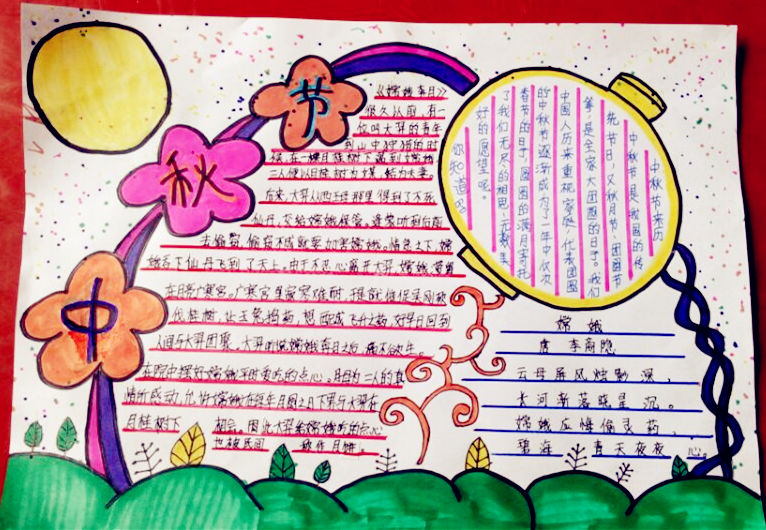 中秋节
《嫦娥奔月》
很久以前,有一
位叫大羿的青年
到山中狩猎的时
候,在一棵月桂树下遇到嫦娥,
二人便以月桂树为媒,结为夫妻。
后来,大羿从西王母那里得到了不死
仙丹,交给嫦娥保管。逢蒙听到后前
去偷窃,偷窃不成就要加害嫦娥。情急之下,嫦
娥吞下仙丹飞到了天上。由于不忍心离开大羿,嫦娥滞留
在月亮广寒宫。广寒宫里寂寥难耐,于是就催促吴刚砍
伐桂树,让玉兔捣药,想配成飞升之药,好早日回到
人间与大羿团聚。大羿听说嫦娥奔月之后,痛不欲生。
在院中摆好嫦娥平时爱吃的点心。月母为二人的真
情所感动,允许嫦娥在每年月圆之日下界与大羿在
月桂树下 相会。因此大羿给嫦娥吃的点心
也被民间 称作月饼。
中秋节来历
中秋节是我国的传
统节日,又称月节、团圆节
等,是全家大团圆的日子。我们
中国人历来重视家庭,代表团圆
的中秋节逐渐成为了一年中仅次
春节的日子,圆圆的满月寄托
了我们无尽的相思、无数美
好的愿望呢。
你知道吗
嫦娥
唐 李商隐
云母屏风烛影深,
长河渐落晓星沉。
嫦娥应悔偷灵药,
碧海青天夜夜心。